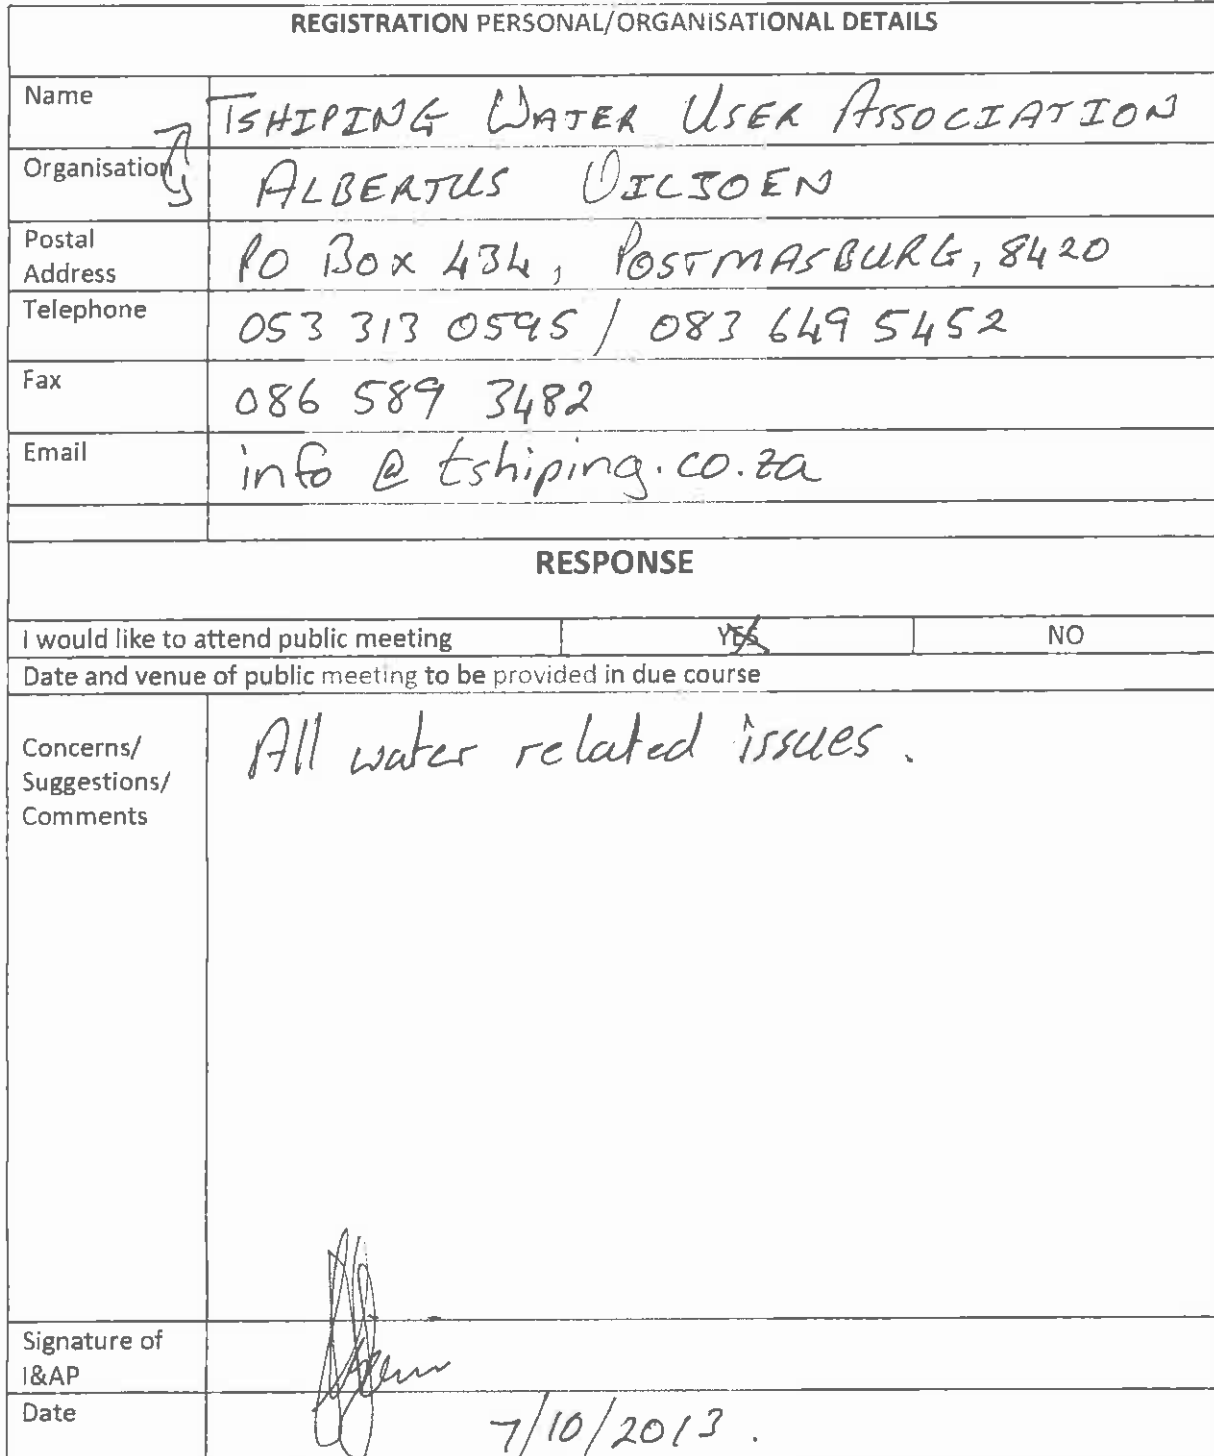 REGISTRATION PERSONAL/ORGANISATIONAL DETAILS
Name TSHIPING WATER USER ASSOCIATION
Organisation ALBERTUS VILJOEN
Postal
Address PO BOX 434, POSTMASBURG, 8420
Telephone 053 313 0595 / 083 649 5452
Fax 086 589 3482
Email info @ tshiping.co.za
RESPONSE
I would like to attend public meeting YES NO
Date and venue of public meeting to be provided in due course
Concerns/
Suggestions/
Comments
All water related issues.
Signature of
I&AP
Date 7/10/2013.